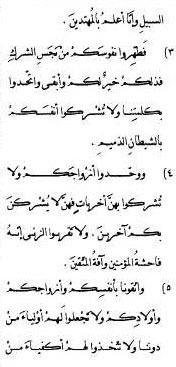 السبيل وأنا أعلم بالمهتدين .
(٣) فطهروا نفوسكم من نجس الشرك
فذلكم خير لكم وأبقى واتحدوا
بكلمتنا ولا تشركوا أنفسكم
بالشيطان الذميم .
(٤) ووحدوا أزواجكم ولا
تشركوا بهن أخريات فهن لا يشركن
بكم آخرين . ولا تقربوا الزنى إنه
فاحشة المؤمنين وآفة المتقين .
(٥) واتقونا بأنفسكم وأزواجكم
وأولادكم ولا تجعلوا لهم أولياء من
دوننا ولا تتخذوا لهم أكفياء من